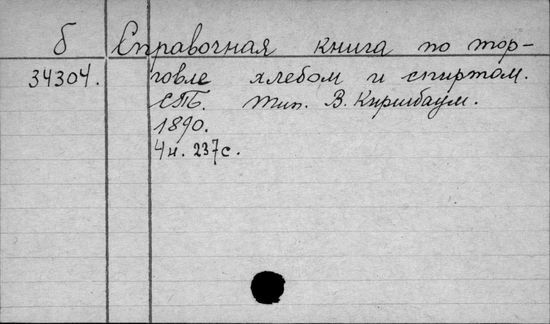 б Справочная книга по тор-
34304. говле хлебом и спиртом.
СПБ. тип. В. Киршбаум.
1890.
4н. 237 с.